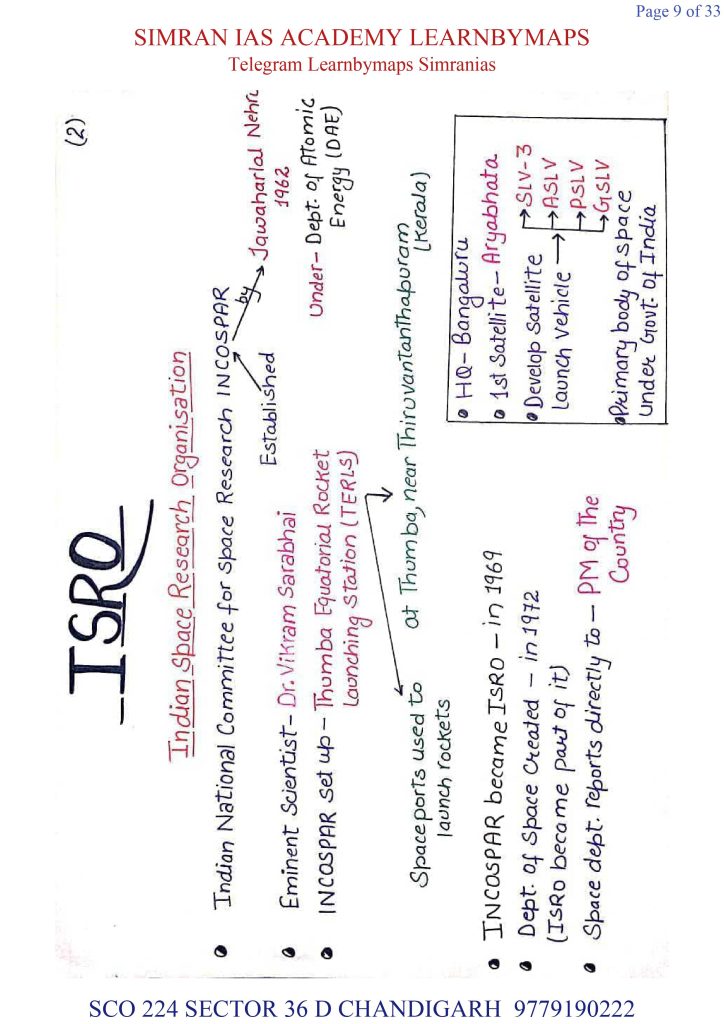 Page 9 of 33
SIMRAN IAS ACADEMY LEARNBYMAPS
Telegram Learnbymaps Simranias
(2)
ISRO
Indian Space Research Organisation
• Indian National Committee for Space Research INCOSPAR
by
Jawaharlal Nehru
1962
Established
Under- Dept. of Atomic
Energy (DAE)
• Eminent Scientist- Dr. Vikram Sarabhai
• INCOSPAR set up - Thumba Equatorial Rocket
Launching Station (TERLS)
Spaceports used to
launch rockets
at Thumba, near Thiruvantanthapuram
(Kerala)
• INCOSPAR became ISRO - in 1969
• Dept. of Space Created - in 1972
(ISRO became part of it)
• Space dept. reports directly to - PM of The
Country
• HQ- Bangaluru
• 1st Satellite- Aryabhata
• Develop Satellite
Launch Vehicle
SLV-3
ASLV
PSLV
GSLV
• Primary body of space
under Govt. Of India
SCO 224 SECTOR 36 D CHANDIGARH 9779190222